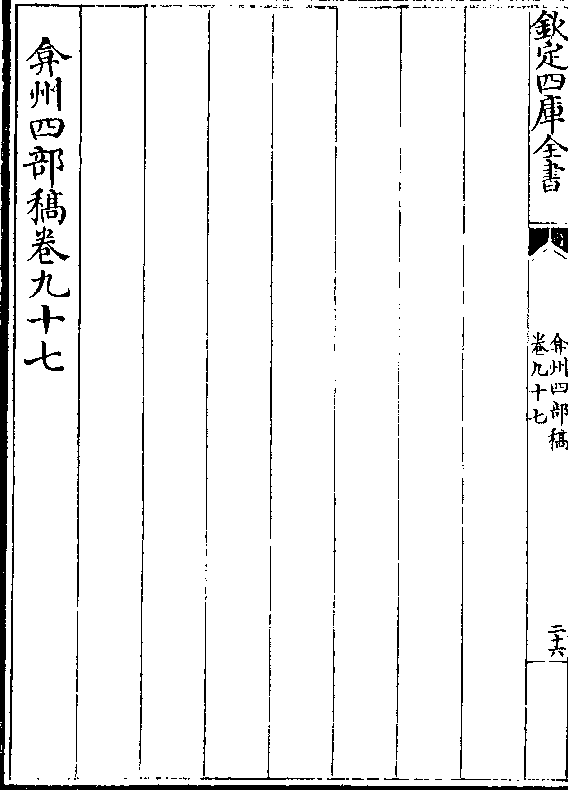 欽定四庫全書
弇州四部稿
卷九十七
二十六
弇州四部稿卷九十七